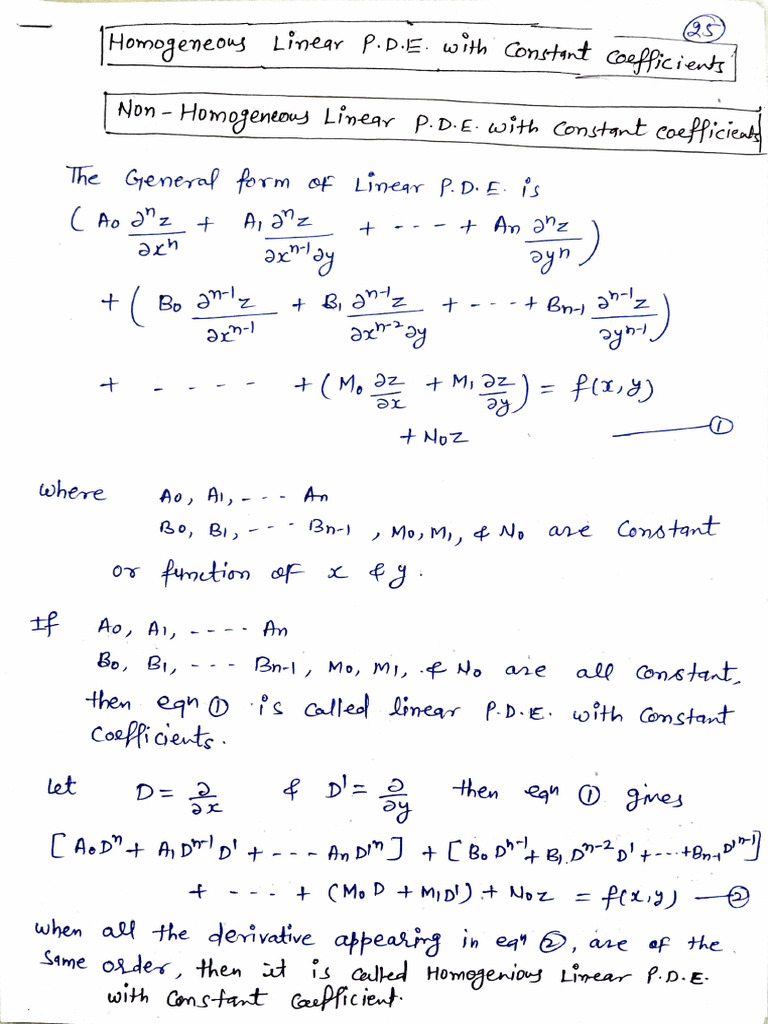 25
Homogeneous Linear P.D.E. with Constant Coefficients
Non-Homogeneous Linear P.D.E. with Constant coefficients
The General form of Linear P.D.E. is
( A₀ ∂ⁿz/∂xⁿ + A₁ ∂ⁿz/∂xⁿ⁻¹∂y + - - - + An ∂ⁿz/∂yⁿ )
+ ( B₀ ∂ⁿ⁻¹z/∂xⁿ⁻¹ + B₁ ∂ⁿ⁻¹z/∂xⁿ⁻²∂y + - - - + Bn-1 ∂ⁿ⁻¹z/∂yⁿ⁻¹ )
+ - - - - + ( M₀ ∂z/∂x + M₁ ∂z/∂y ) = f(x,y)
+ N₀z ——①
where A₀, A₁, - - - An
B₀, B₁, - - - Bn-1 , M₀, M₁, & N₀ are Constant
or function of x & y.
If A₀, A₁, - - - - An
B₀, B₁, - - - Bn-1, M₀, M₁, & N₀ are all constant,
then eqn ① is called linear P.D.E. with Constant
Coefficients.
Let D = ∂/∂x & D' = ∂/∂y then eqn ① gives
[ A₀Dⁿ + A₁Dⁿ⁻¹D' + - - - AnD'ⁿ ] + [ B₀Dⁿ⁻¹ + B₁Dⁿ⁻²D' + - - - + Bn-1D'ⁿ⁻¹ ]
+ - - - + (M₀D + M₁D') + N₀z = f(x,y) —②
when all the derivative appearing in eqn ②, are of the
same order, then it is called Homogenious Linear P.D.E.
with Constant Coefficient.